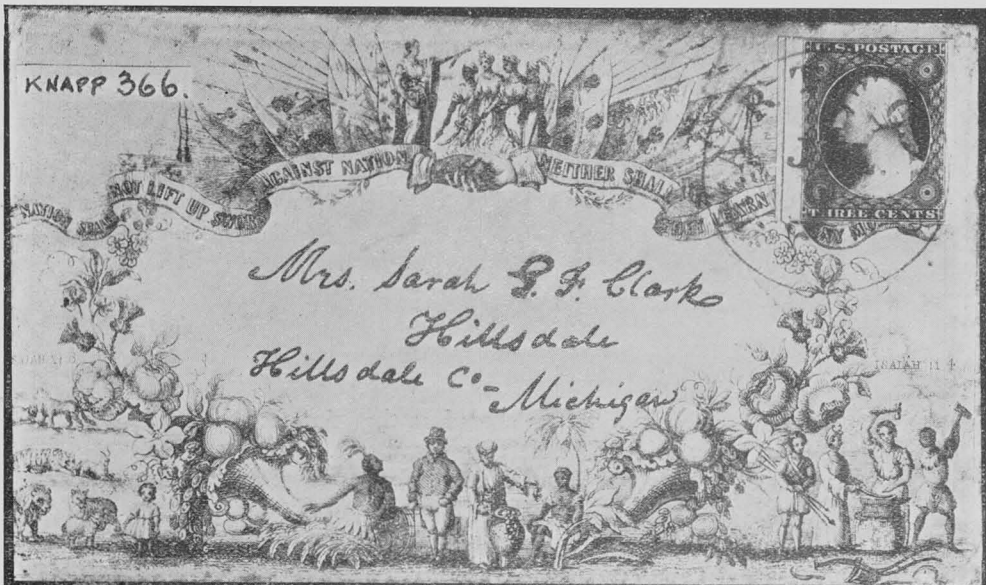 KNAPP 366.
U.S. POSTAGE
THREE CENTS
NATION SHALL NOT LIFT UP SWORD AGAINST NATION NEITHER SHALL THEY LEARN ANY
Mrs. Sarah G. F. Clark
Hillsdale
Hillsdale Co- Michigan
ISAIAH 11